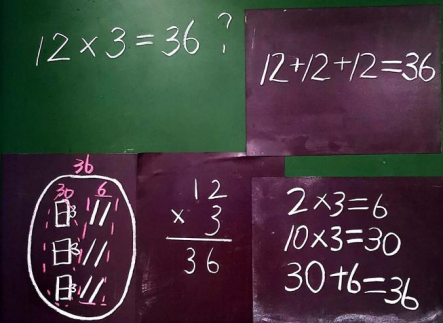 12×3=36?
12+12+12=36
36
30 6
12
× 3
36
2×3=6
10×3=30
30+6=36